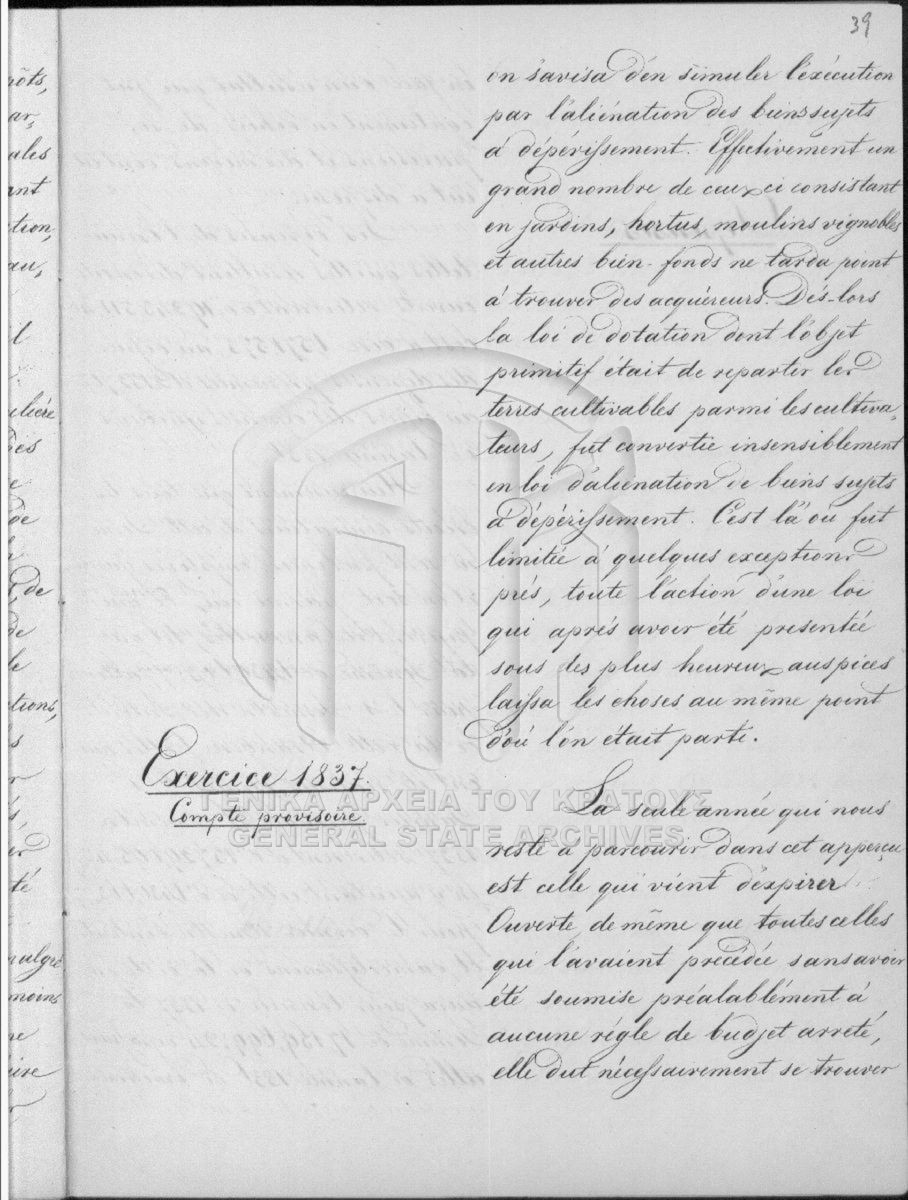 39
on s'avisa d'en simuler l'exécution
par l'aliénation des biens sujets
à dépérissement. Effectivement un
grand nombre de ceux ci consistant
en jardins, hortus, moulins vignobles
et autres bien-fonds ne tarda point
à trouver des acquéreurs. Dés-lors
la loi de dotation dont l'objet
primitif était de repartir les
terres cultivables parmi les cultiva-
teurs, fut convertie insensiblement
en loi d'aliénation de biens sujets
à dépérissement. C'est là où fut
limitée à quelques exceptions
prés, toute l'action d'une loi
qui aprés avoir été presentée
sous des plus heureux auspices
laissa les choses au même point
d'où l'on était parti.
Exercice 1837.
Compte provisoire
La seule année qui nous
reste à parcourir dans cet apperçu
est celle qui vient d'expirer
Ouverte de même que toutes celles
qui l'avaient précédée sans avoir
été soumise préalablément à
aucune régle de budjet arreté,
elle dut nécessairement se trouver
ΓΕΝΙΚΑ ΑΡΧΕΙΑ ΤΟΥ ΚΡΑΤΟΥΣ
GENERAL STATE ARCHIVES